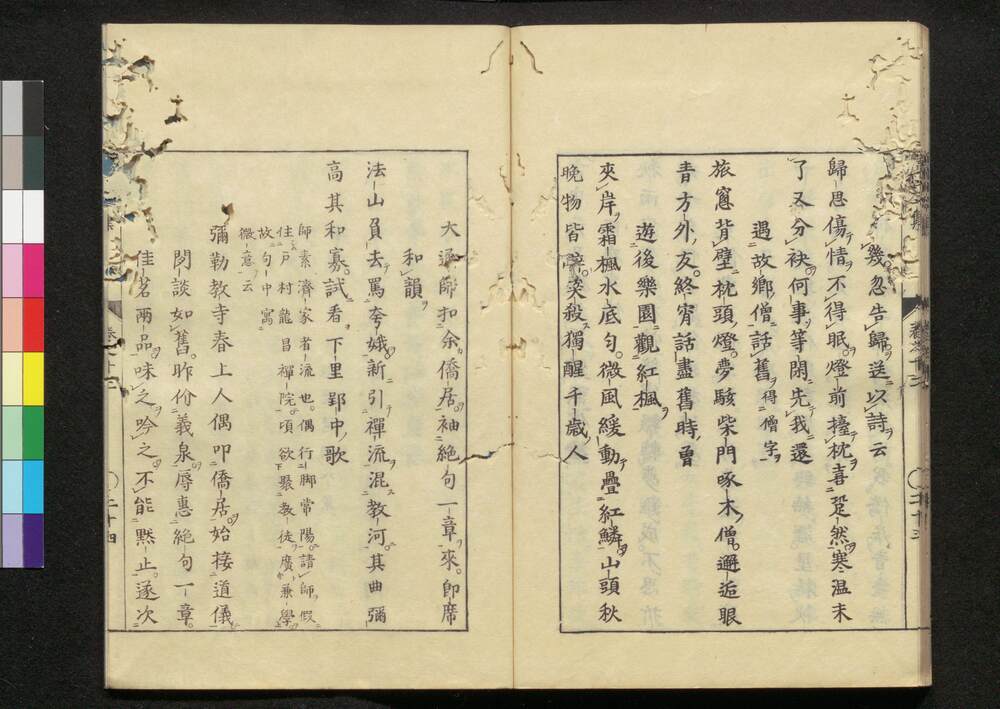 幾忽告歸送以詩云
歸思傷情不得眠。燈前擡枕喜跫然。寒温未
了又分袂。何事等閑先我還
遇故鄉僧話舊 得僧字
旅窓背壁枕頭燈。夢駭柴門啄木僧。邂逅眼
青方外友。終宵話盡舊時曾
遊後樂園觀紅楓
夾岸霜楓水底勻。微風緩動疊紅鱗。山頭秋
晚物皆醉。染殺獨醒千歲人
卷之十二
二十三
大通師扣余僑居。袖絕句一章來。即席
和韻
法山負去罵夸娥。新引禪流混教河。其曲彌
高其和寡。試看下里郢中歌
師素濟家者流也。偶行脚常陽。請師假
住戸村龍昌禪院。頃欲聚教徒廣兼學
故句中寓
微意云
彌勒教寺春上人偶叩僑居。始接道儀
閑談如舊。昨份義泉。辱惠絕句一章。
佳茗兩品。味之吟之。不能默止。遂次
集
卷之十二
二十四